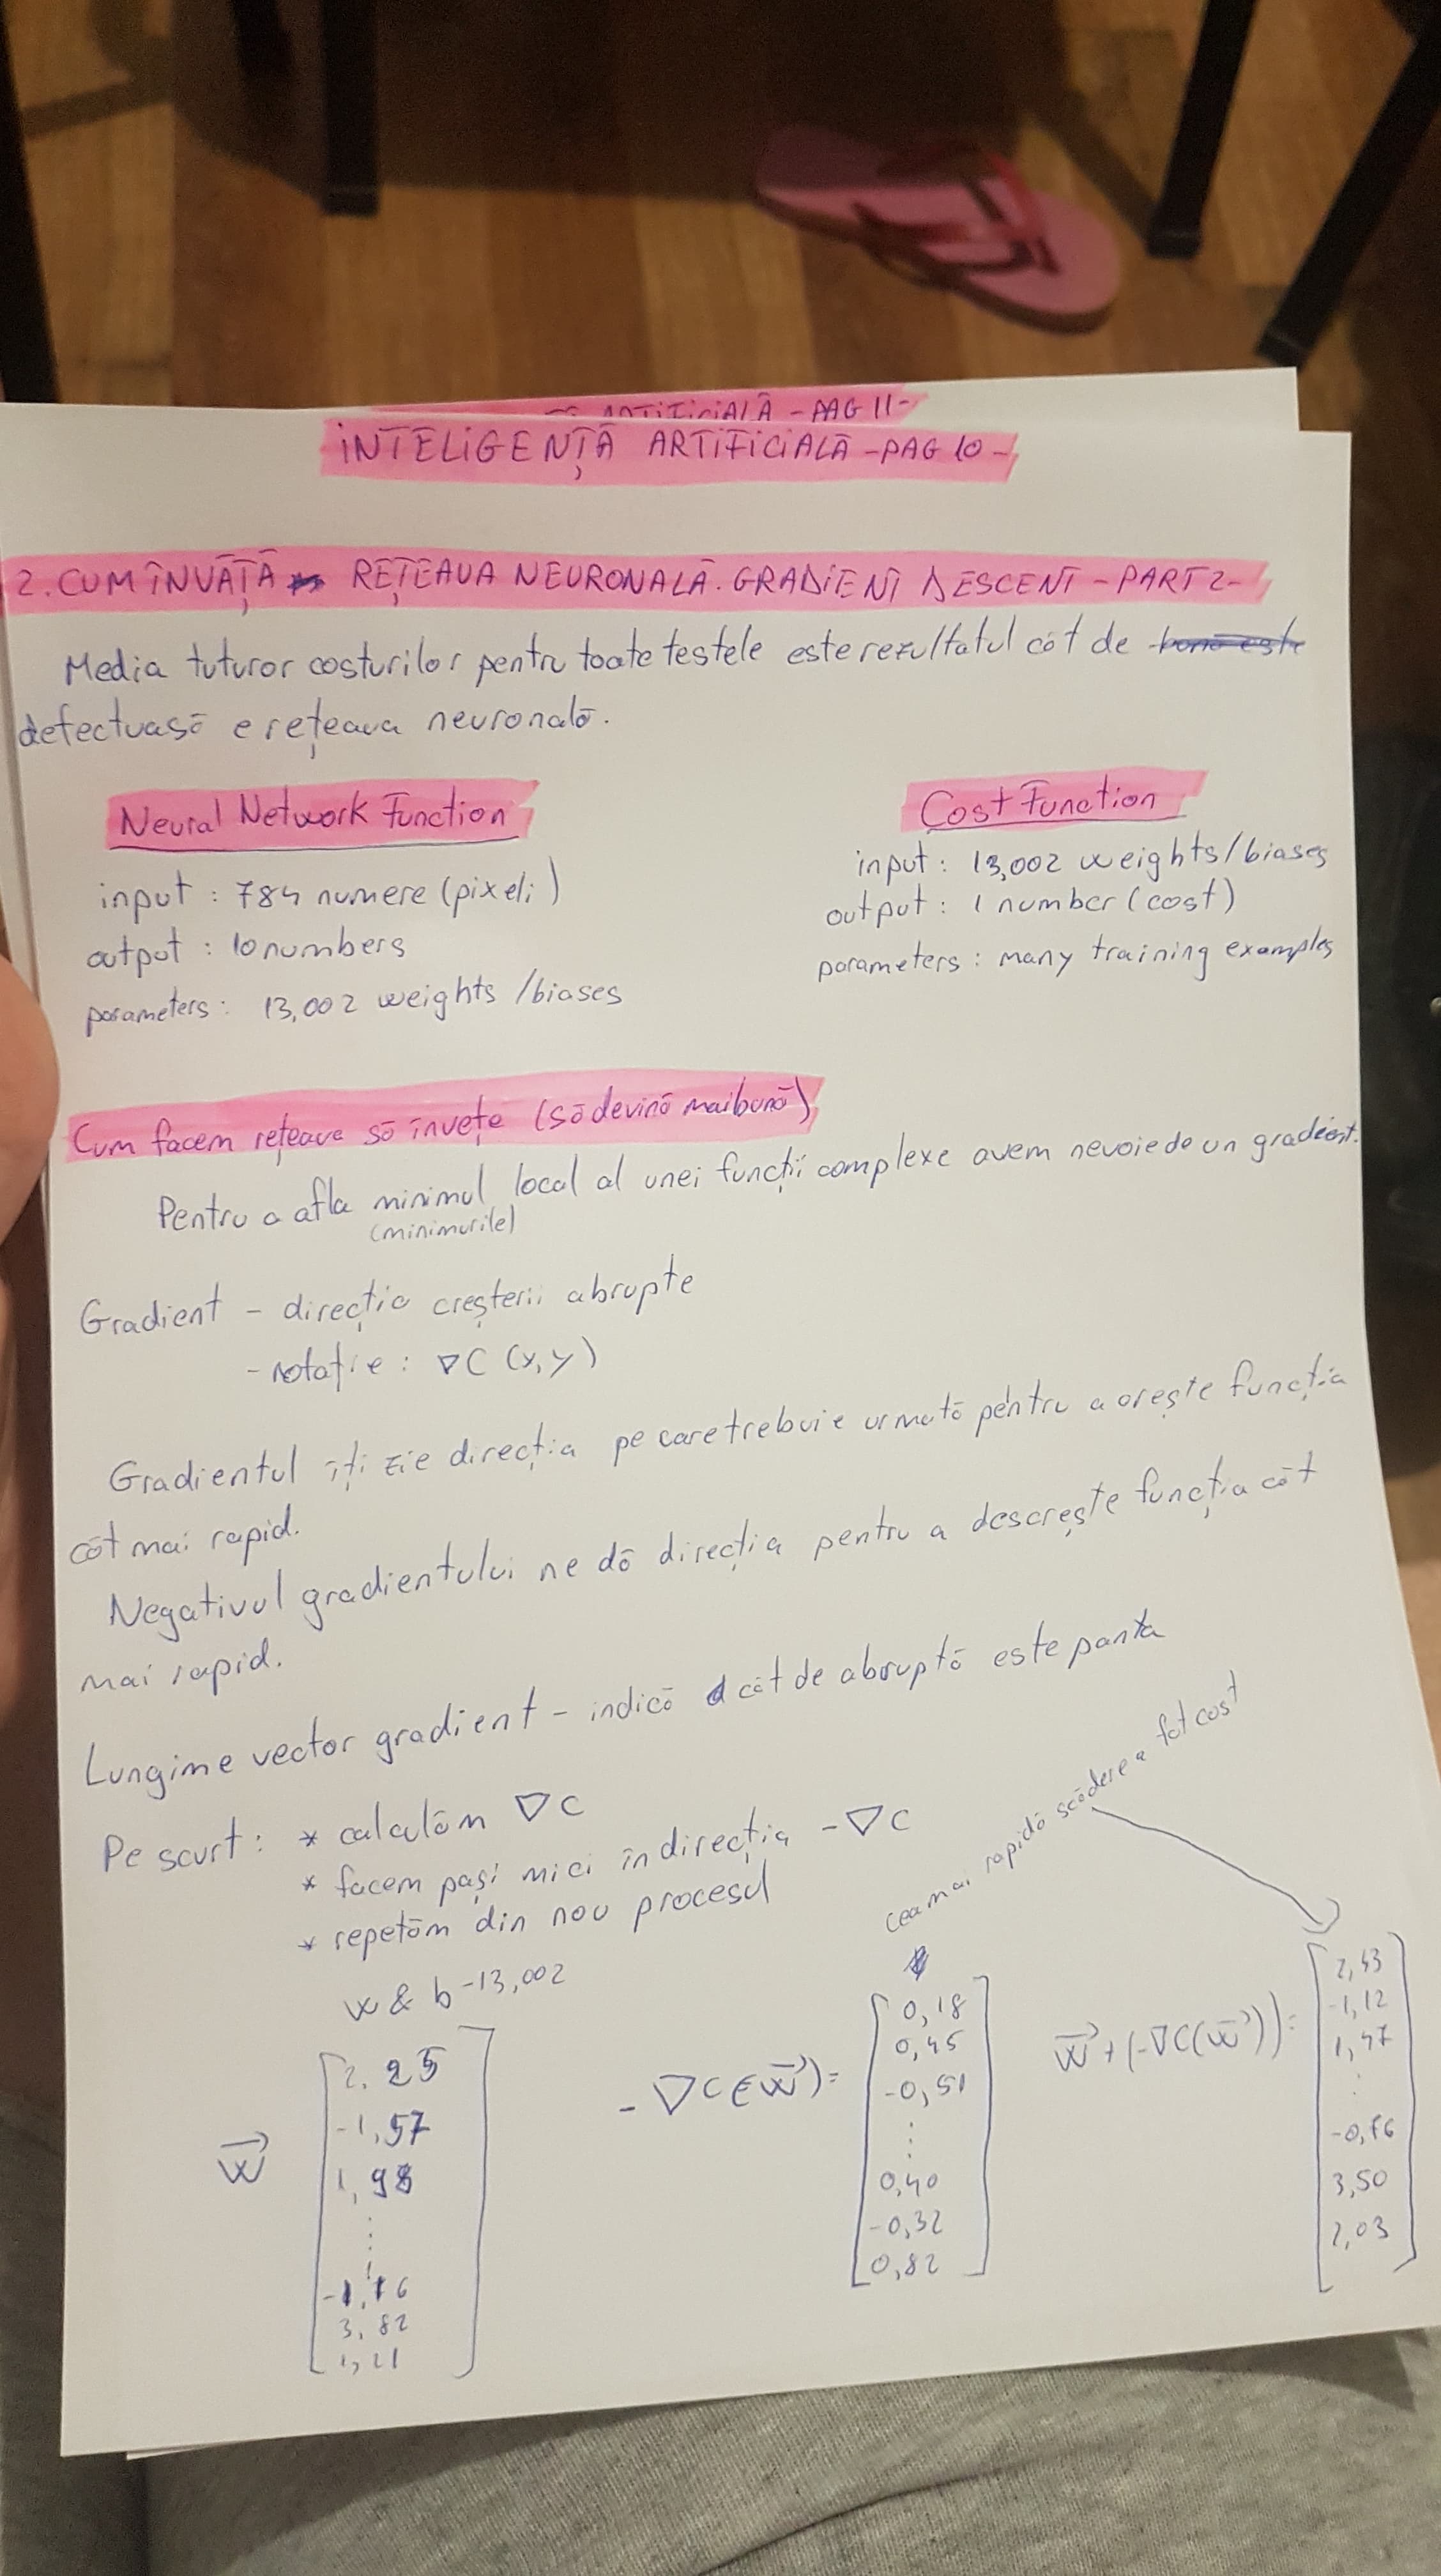 ARTIFICIALĂ - PAG 11-
INTELIGENȚĂ ARTIFICIALĂ - PAG 10 -
2. CUM ÎNVAȚĂ REȚEAUA NEURONALĂ. GRADIENT DESCENT - PART 2-
Media tuturor costurilor pentru toate testele este rezultatul cât de
defectuasă e rețeaua neuronală.
Neural Network Function
input : 784 numere (pixeli)
output : 10 numbers
parameters : 13,002 weights / biases
Cost Function
input : 13,002 weights / biases
output : 1 number (cost)
parameters : many training examples
Cum facem rețeaua să învețe (să devină mai bună)
Pentru a afla minimul local al unei funcții complexe avem nevoie de un gradient.
(minimurile)
Gradient - direcția creșterii abrupte
- notație : ∇C (x,y)
Gradientul îți zie direcția pe care trebuie urmată pentru a crește funcția
cât mai rapid.
Negativul gradientului ne dă direcția pentru a descrește funcția cât
mai rapid.
Lungime vector gradient - indică cât de abruptă este panta
Pe scurt : * calculăm ∇C
* facem pași mici în direcția -∇C
* repetăm din nou procesul
cea mai rapidă scădere a fct cost
w & b - 13,002
w⃗
2,25
-1,57
1,98
⋮
-1,16
3,82
1,21
-∇C(w⃗) =
0,18
0,45
-0,51
⋮
0,40
-0,32
0,82
w⃗ + (-∇C(w⃗)) =
2,43
-1,12
1,47
⋮
3,50
2,03